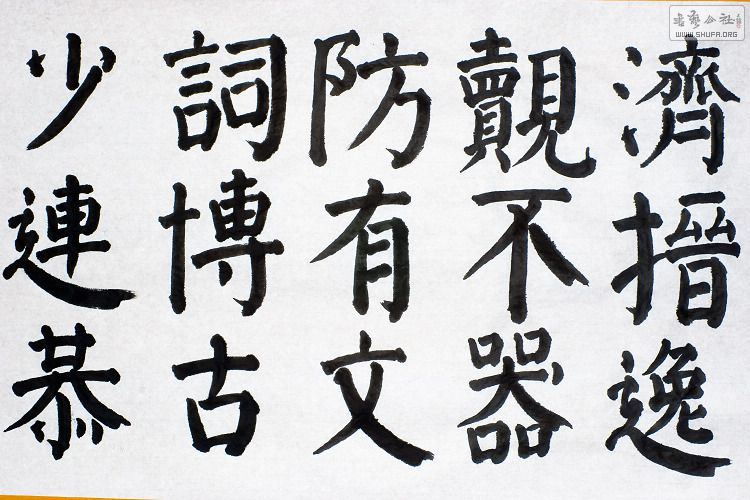 濟搢逸
覿不器
防有文
詞博古
少連恭
書藝公社
WWW.SHUFA.ORG